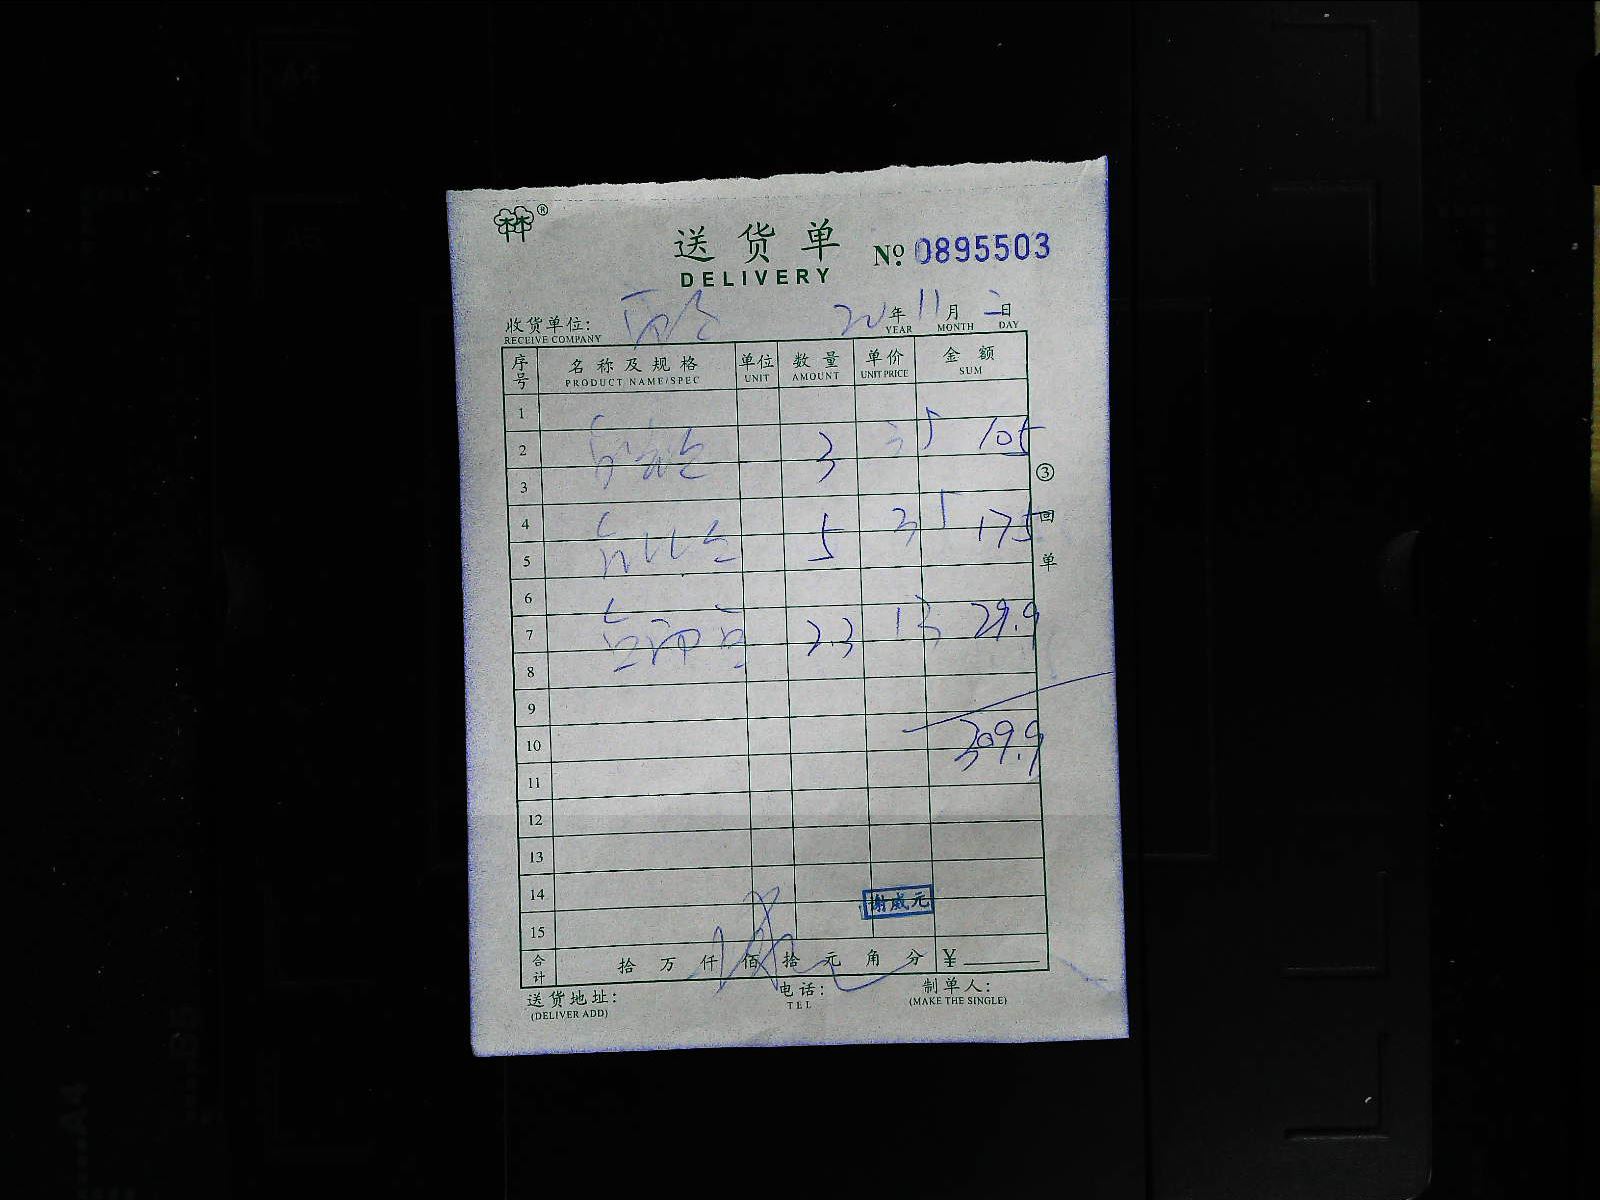 林 ®
送货单 № 0895503
DELIVERY
收货单位: 年 11 月 二 日
RECEIVE COMPANY YEAR MONTH DAY
序号 名称及规格 单位 数量 单价 金额
PRODUCT NAME/SPEC UNIT AMOUNT UNIT PRICE SUM
1
2 3 35 105
3
③回单
4
5 5 35 175
6
7 2.3 13 29.9
8
9
10 309.9
11
12
13
14 谢威元
15
合计 拾 万 仟 佰 拾 元 角 分 ¥
送货地址: 电话: 制单人:
(DELIVER ADD) TEL (MAKE THE SINGLE)